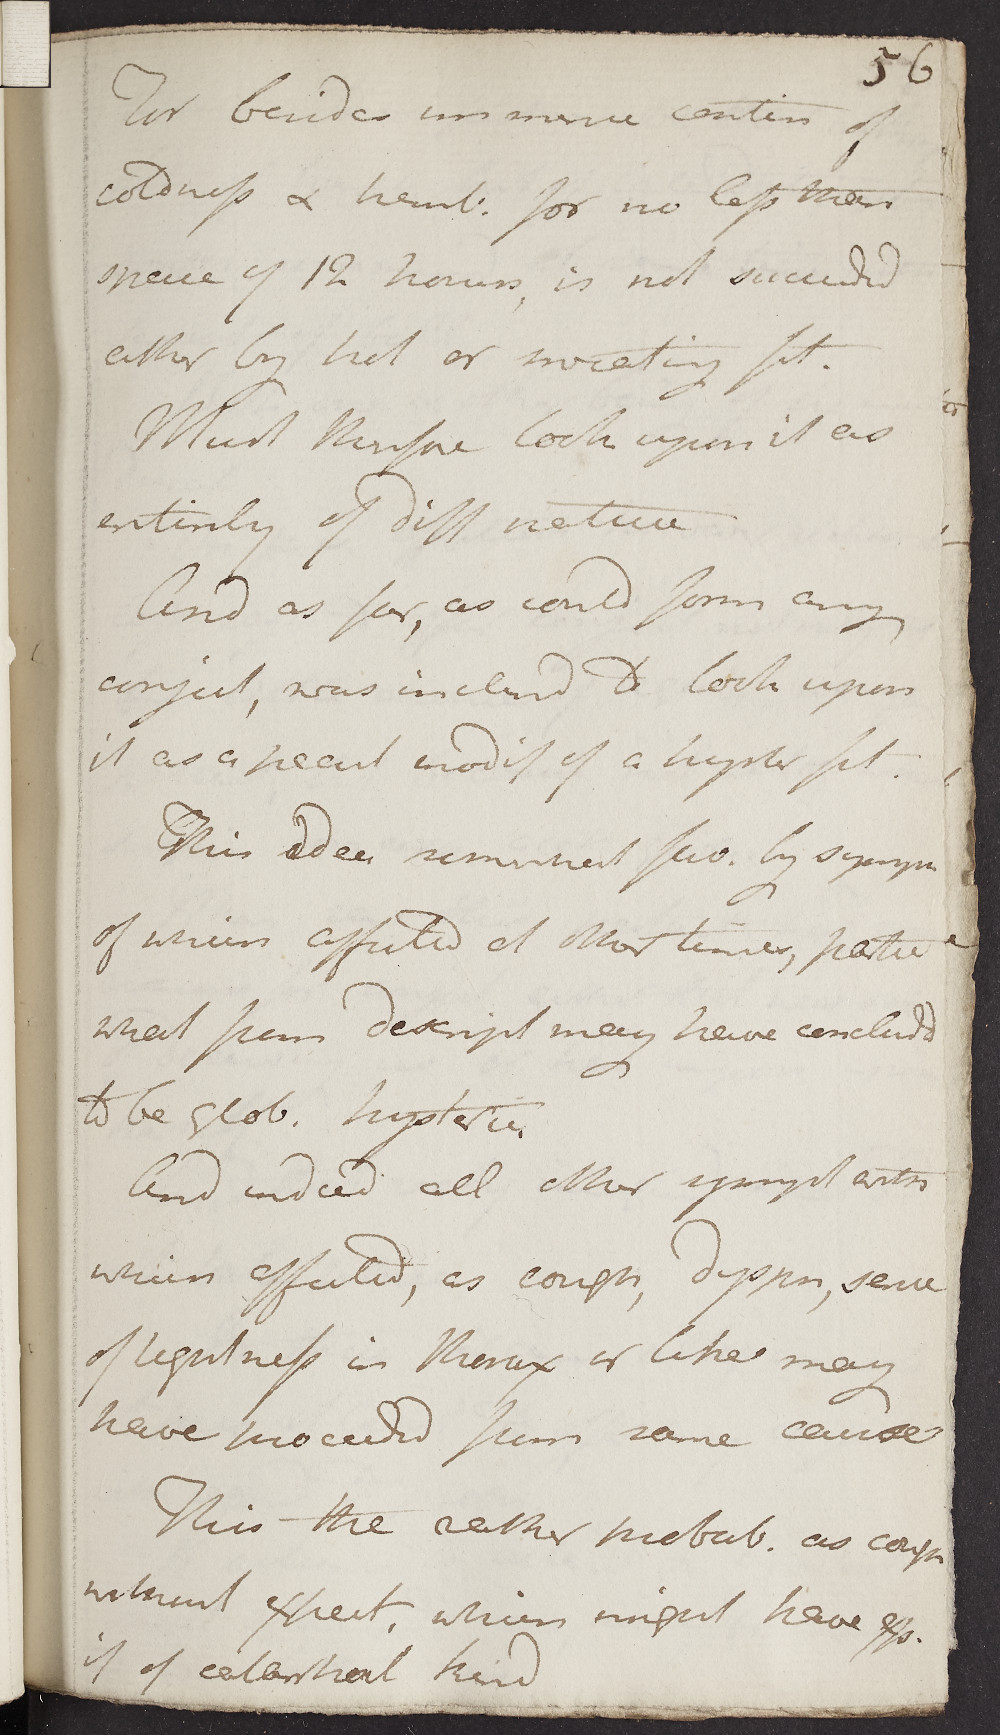 56
For besides immense contin of
coldness & tremb. for no less than
space of 12 hours, is not succeeded
either by hot or sweating fit.
Must therefore look upon it as
entirely of diff nature
And as far, as could form any
conject, was inclind to look upon
it as a pecul modif of a hyster fit.
This idea somewhat fav. by symp
of which affected at other times, partic
what from descript may have concludd
to be glob. hysteric
And indeed all other sympt with
which affected, as cough, dyspn, sense
of tightness in thorax or likes may
have proceedd from same cause
This the rather probab. as cough
without expect, which might have exp.
if of catarrheal kind